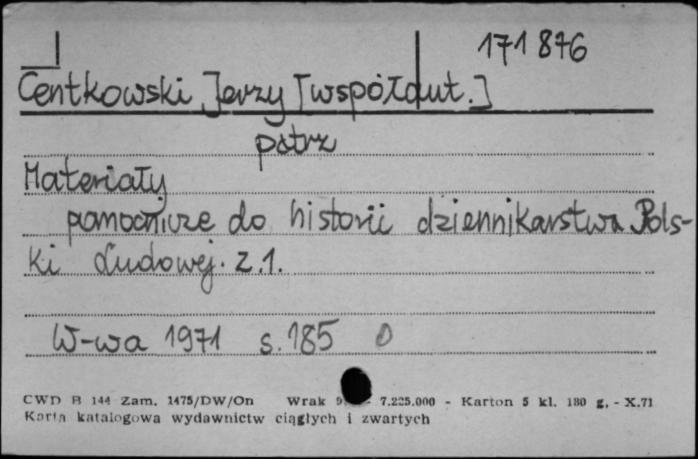 171876
Centkowski Jerzy [współaut.]
patrz
Materiały
pomocnicze do historii dziennikarstwa Pols-
ki Ludowej. Z.1.
W-wa 1971 s.185
CWD B 144 Zam. 1475/DW/On Wrak 7.225.000 - Karton 5 kl. 180 g. - X.71
Karta katalogowa wydawnictw ciągłych i zwartych